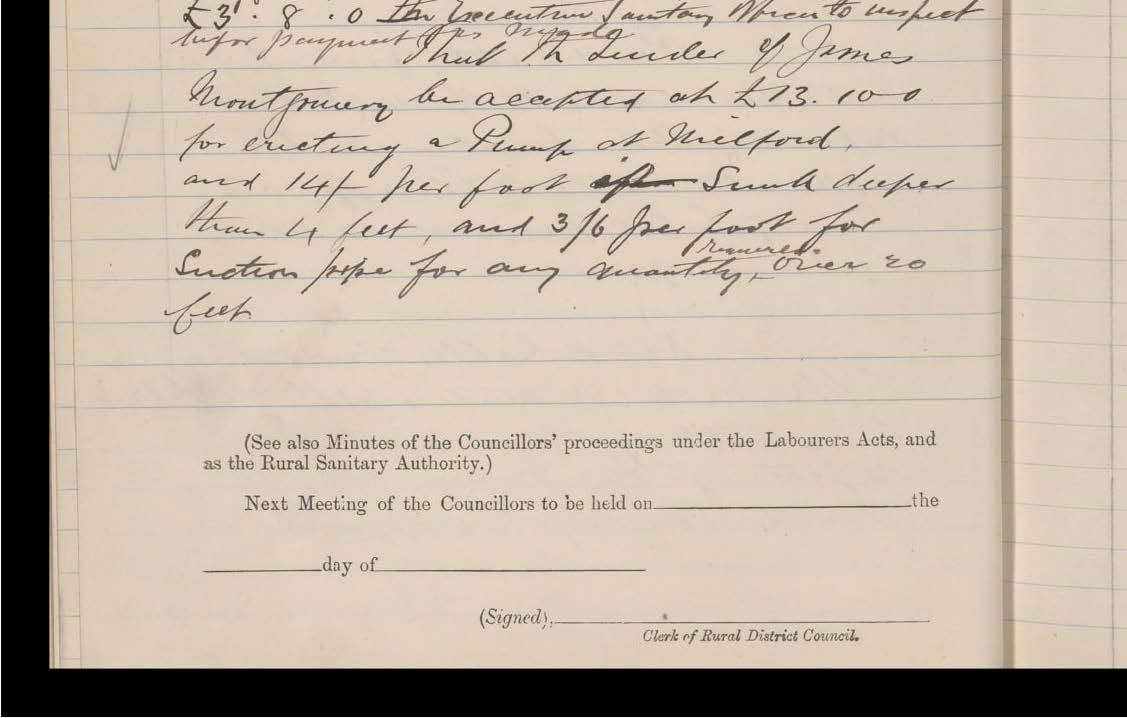 £3 . 8 . 0 The Executive Sanitary Officer to inspect
before payment is made
That the Tender of James
Montgomery be accepted at £13.10-0
for erecting a Pump at Milford,
and 14/- per foot if Sunk deeper
than 4 feet, and 3/6 per foot for
Suction pipe for any quantity, required over 20
feet
(See also Minutes of the Councillors' proceedings under the Labourers Acts, and
as the Rural Sanitary Authority.)
Next Meeting of the Councillors to be held on the
day of
(Signed),
Clerk of Rural District Council.